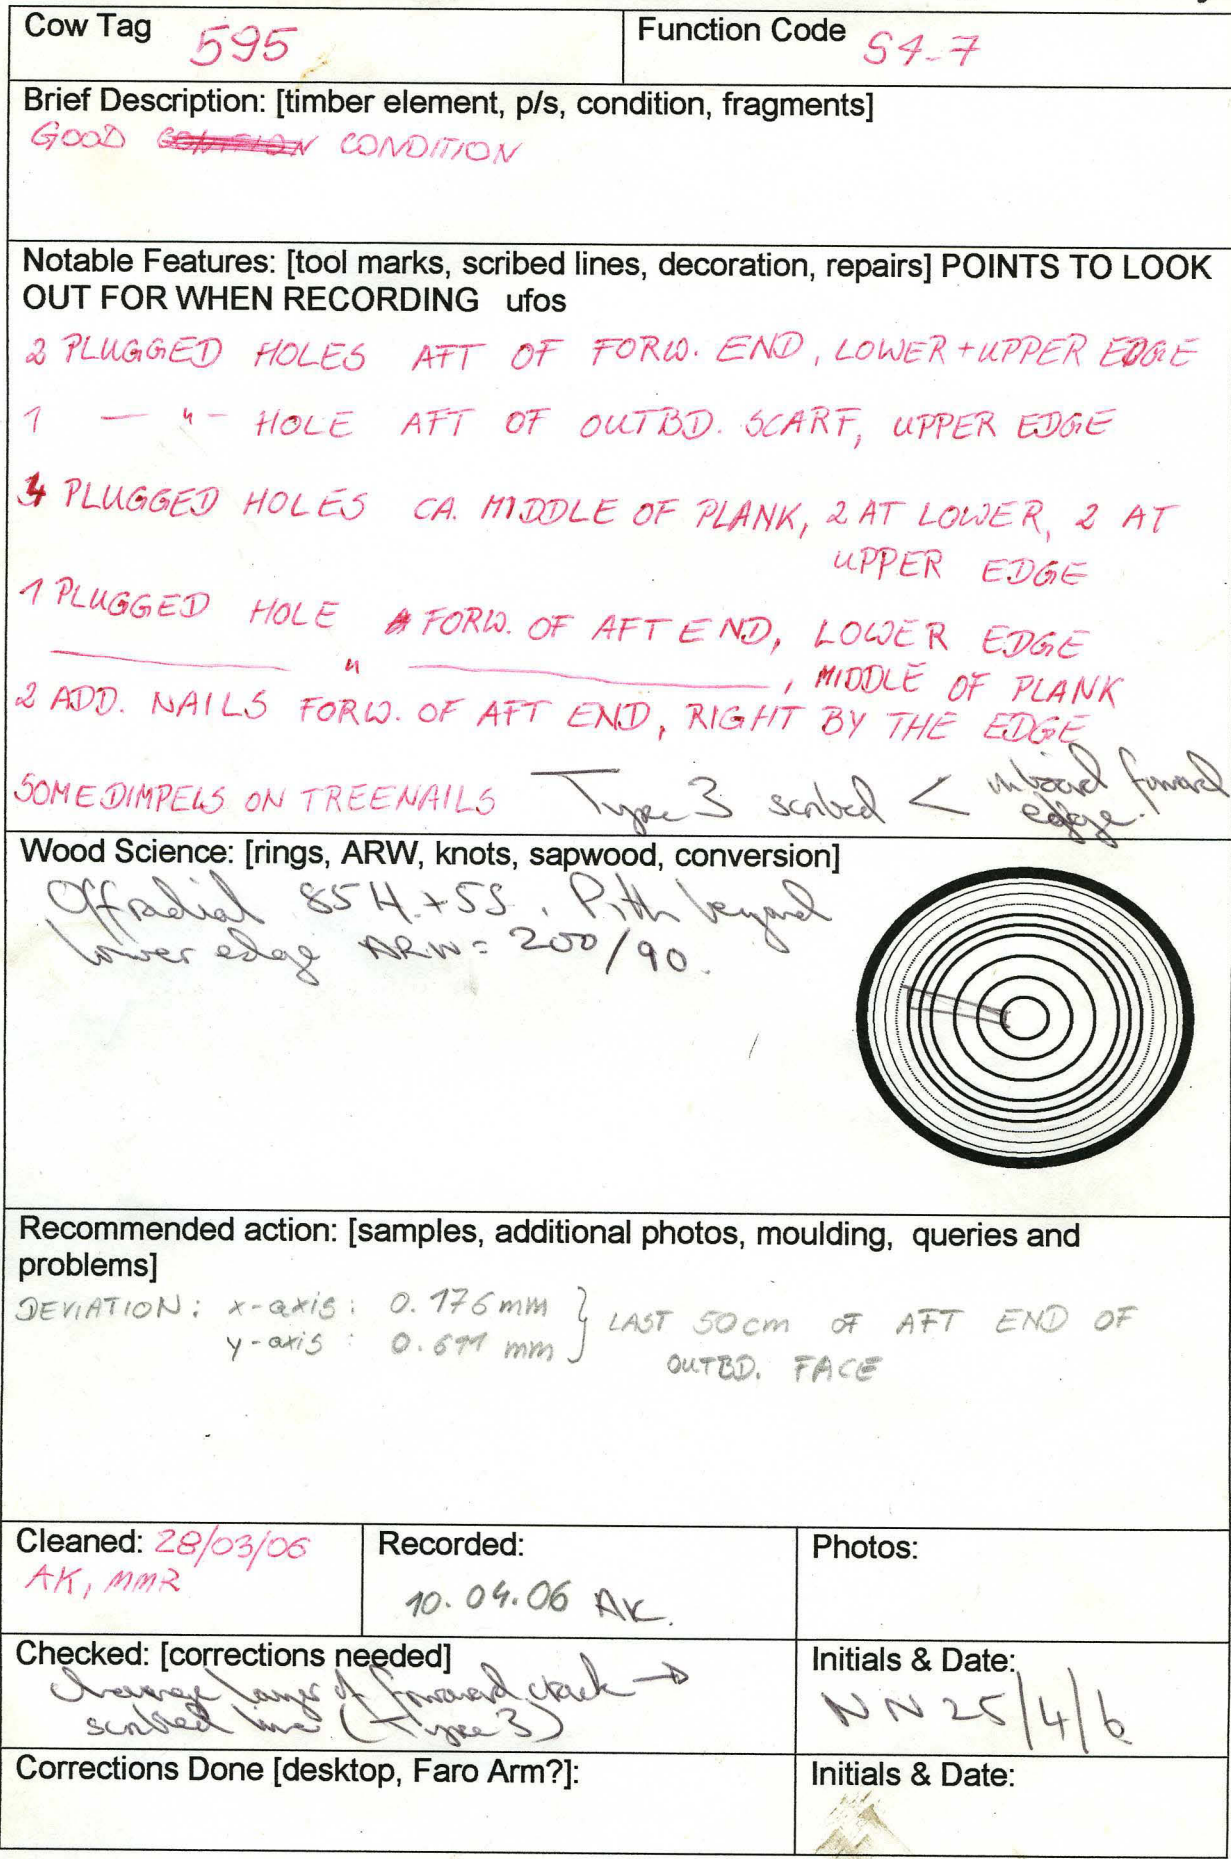 Cow Tag 595
Function Code S4-7
Brief Description: [timber element, p/s, condition, fragments]
GOOD CONDITION
Notable Features: [tool marks, scribed lines, decoration, repairs] POINTS TO LOOK
OUT FOR WHEN RECORDING ufos
2 PLUGGED HOLES AFT OF FORW. END, LOWER + UPPER EDGE
1 — " — HOLE AFT OF OUTBD. SCARF, UPPER EDGE
4 PLUGGED HOLES CA. MIDDLE OF PLANK, 2 AT LOWER, 2 AT
UPPER EDGE
1 PLUGGED HOLE FORW. OF AFT END, LOWER EDGE
— " —, MIDDLE OF PLANK
2 ADD. NAILS FORW. OF AFT END, RIGHT BY THE EDGE
SOME DIMPELS ON TREENAILS Type 3 scribed < inboard forward
edge.
Wood Science: [rings, ARW, knots, sapwood, conversion]
Offradial 85H + 5S. Pith beyond
lower edge ARW = 200/90.
Recommended action: [samples, additional photos, moulding, queries and
problems]
DEVIATION: x-axis: 0.176 mm } LAST 50cm OF AFT END OF
y-axis: 0.611 mm OUTBD. FACE
Cleaned: 28/03/06
AK, MMR
Recorded:
10.04.06 AK.
Photos:
Checked: [corrections needed]
Change layer of forward crack →
scribed line (Type 3)
Initials & Date:
NN 25/4/6
Corrections Done [desktop, Faro Arm?]:
Initials & Date: